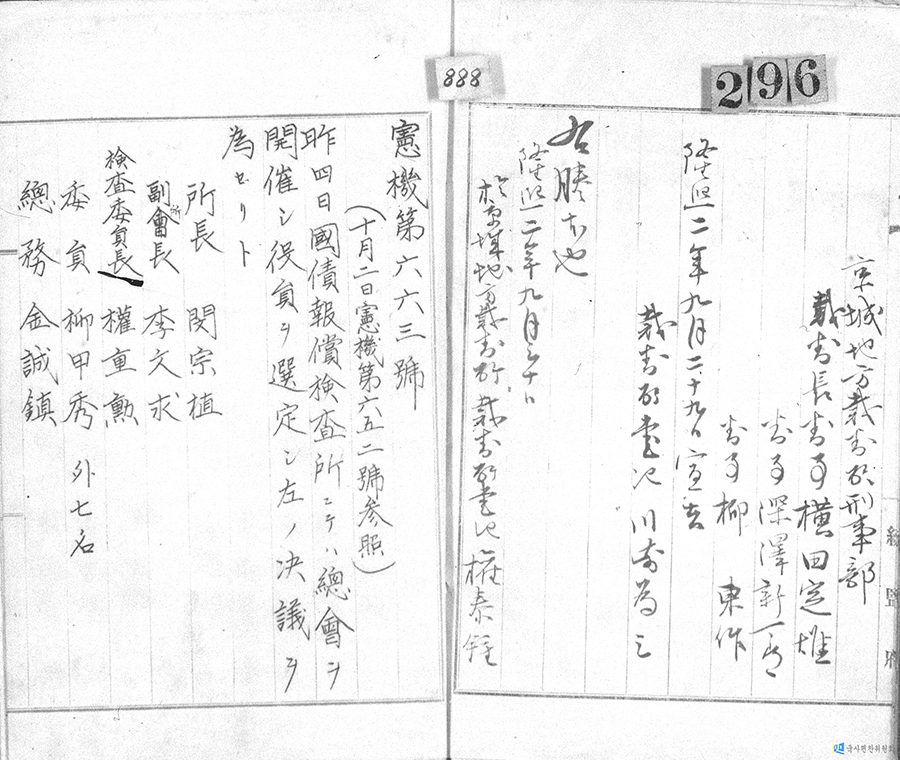 296
888
京城地方裁判所刑事部
裁判長判事 横田定雄
判事 深澤新一郎
判事 柳 東作
隆熙二年九月二十九日宣告
裁判所書記 川崎為之
右謄本也
隆熙二年九月三十日
於京城地方裁判所
裁判所書記 權泰銓
憲機第六六三號
(十月二日憲機第六五二號參照)
昨四日國債報償検査所ニテハ總會ヲ
開催シ役員ヲ選定シ左ノ決議ヲ
為セリト
所長 閔宗植
副所長 李文求
検査委員長 權重勲
委員 柳甲秀 外七名
總務 金誠鎮
統監府
국사편찬위원회